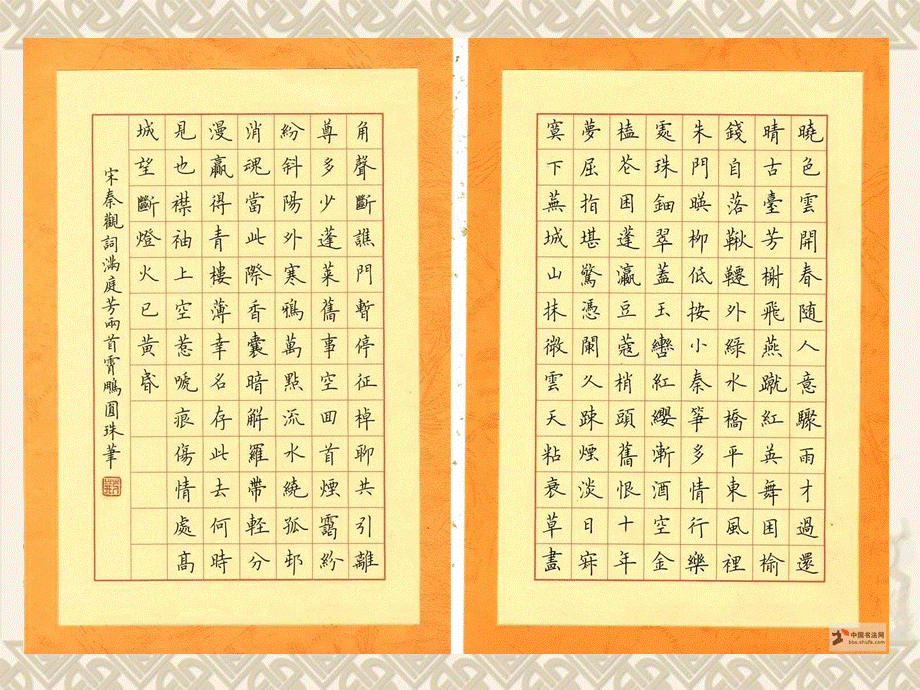 曉色雲開春随人意驟雨才過還
晴古臺芳榭飛燕蹴紅英舞困榆
錢自落鞦韆外緑水橋平東風裡
朱門暎柳低按小秦筝多情行樂
處珠鈿翠蓋玉轡紅纓漸酒空金
榼花困蓬瀛豆蔻梢頭舊恨十年
夢屈指堪驚憑闌久踈煙淡日寂
寞下蕪城山抹微雲天粘衰草畫
角聲斷譙門暫停征棹聊共引離
尊多少蓬萊舊事空回首煙靄紛
紛斜陽外寒鴉萬點流水繞孤邨
消魂當此際香囊暗解羅帶軽分
漫贏得青樓薄幸名存此去何時
見也襟袖上空惹嗁痕傷情處高
城望斷燈火已黄昏
宋秦觀詞滿庭芳兩首霄鵬圓珠筆
中国书法网
bbs.shufa.com